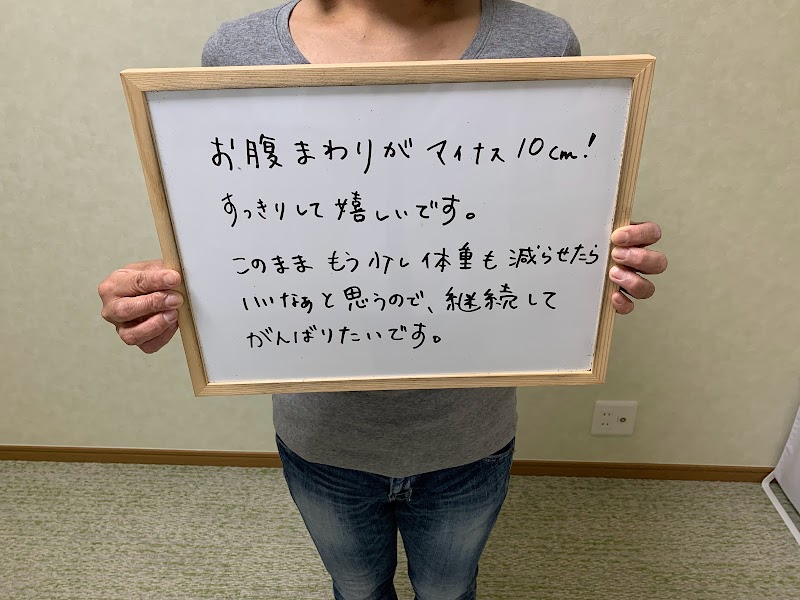 お腹まわりがマイナス10cm!
すっきりして嬉しいです。
このままもう少し体重も減らせたら
いいなぁと思うので、継続して
がんばりたいです。